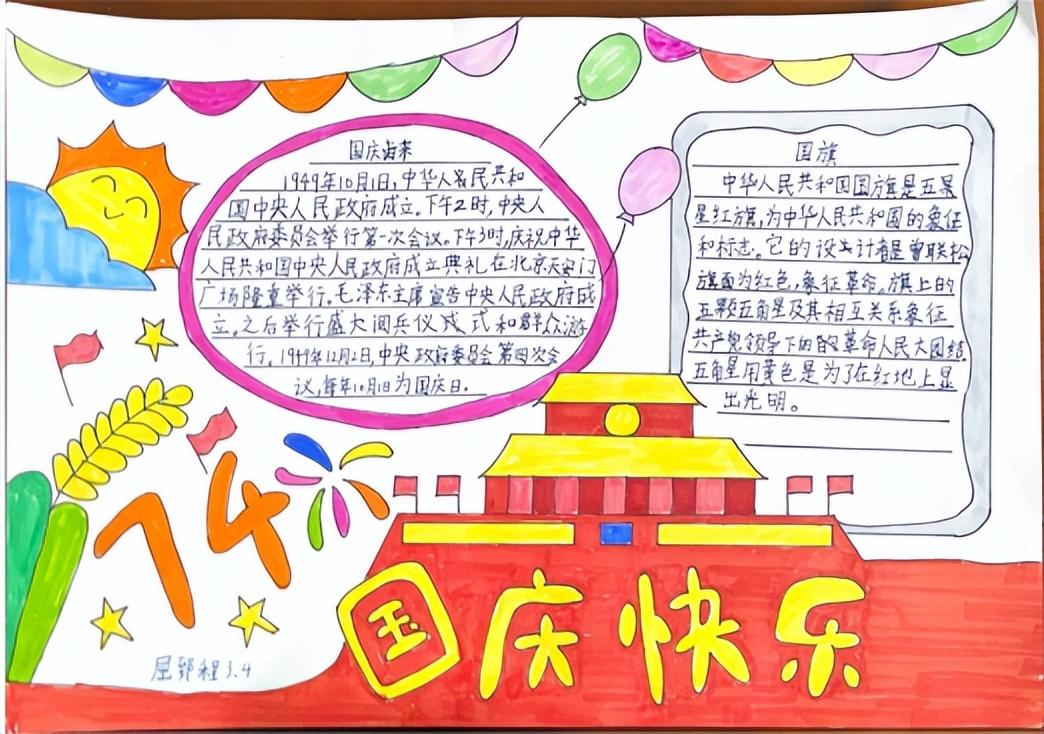 国庆由来
1949年10月1日，中华人民共和
国中央人民政府成立。下午2时，中央人
民政府委员会举行第一次会议。下午3时，庆祝中华
人民共和国中央人民政府成立典礼在北京天安门
广场隆重举行。毛泽东主席宣告中央人民政府成
立。之后举行盛大阅兵仪式 式和群众游
行。1949年12月2日，中央政府委员会第四次会
议，每年10月1日为国庆日。
国旗
中华人民共和国国旗是五星
星红旗，为中华人民共和国的象征
和标志。它的设计者是曾联松
旗面为红色，象征革命。旗上的
五颗五角星及其相互关系象征
共产党领导下的革命人民大团结
五角星用黄色是为了在红地上显
出光明。
74
国庆快乐
屈郅程3.4